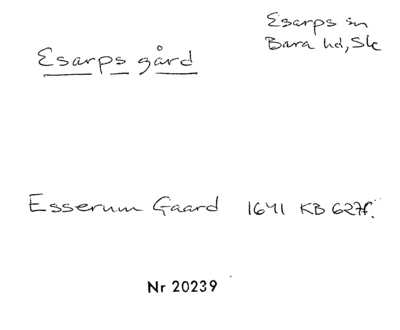 Esarps sn
Bara hd, Sk
Esarps gård
Esserum Gaard 1641 KB 627f.
Nr 20239